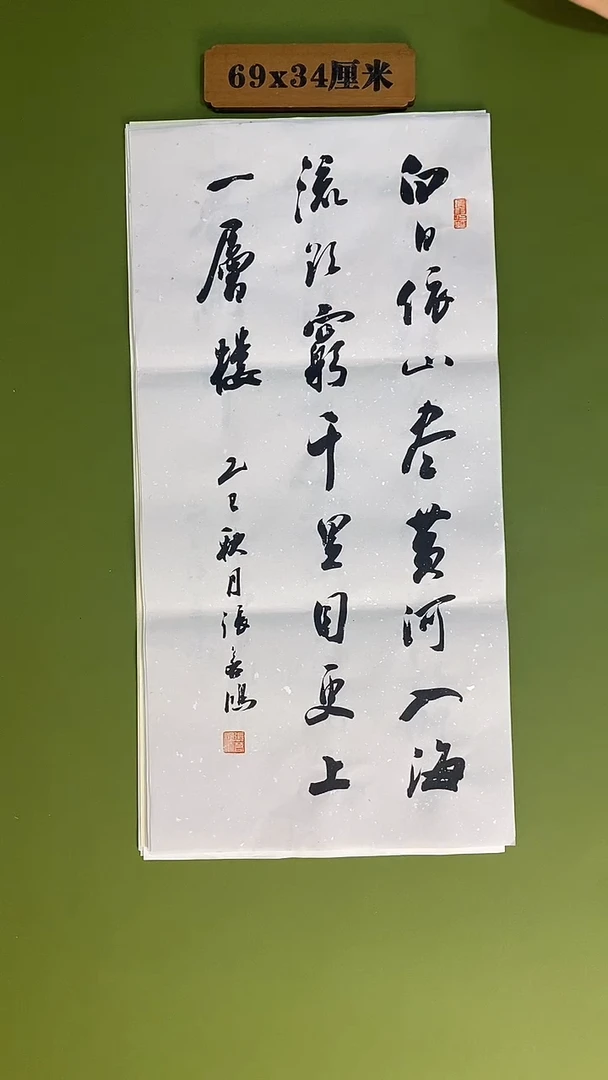 69x34厘米
白日依山尽黄河入海
流欲窮千里目更上
一層楼
乙巳秋月張